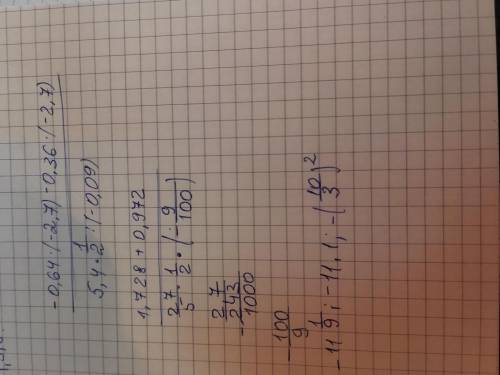 -0,64·(-2,7)-0,36·(-2,7)
5,4·1/2·(-0,09)
1,728+0,972
27/5·1/2·(-9/100)
2,7
-243/1000
-100/9
-11 1/9; -11,1; -(10/3)²